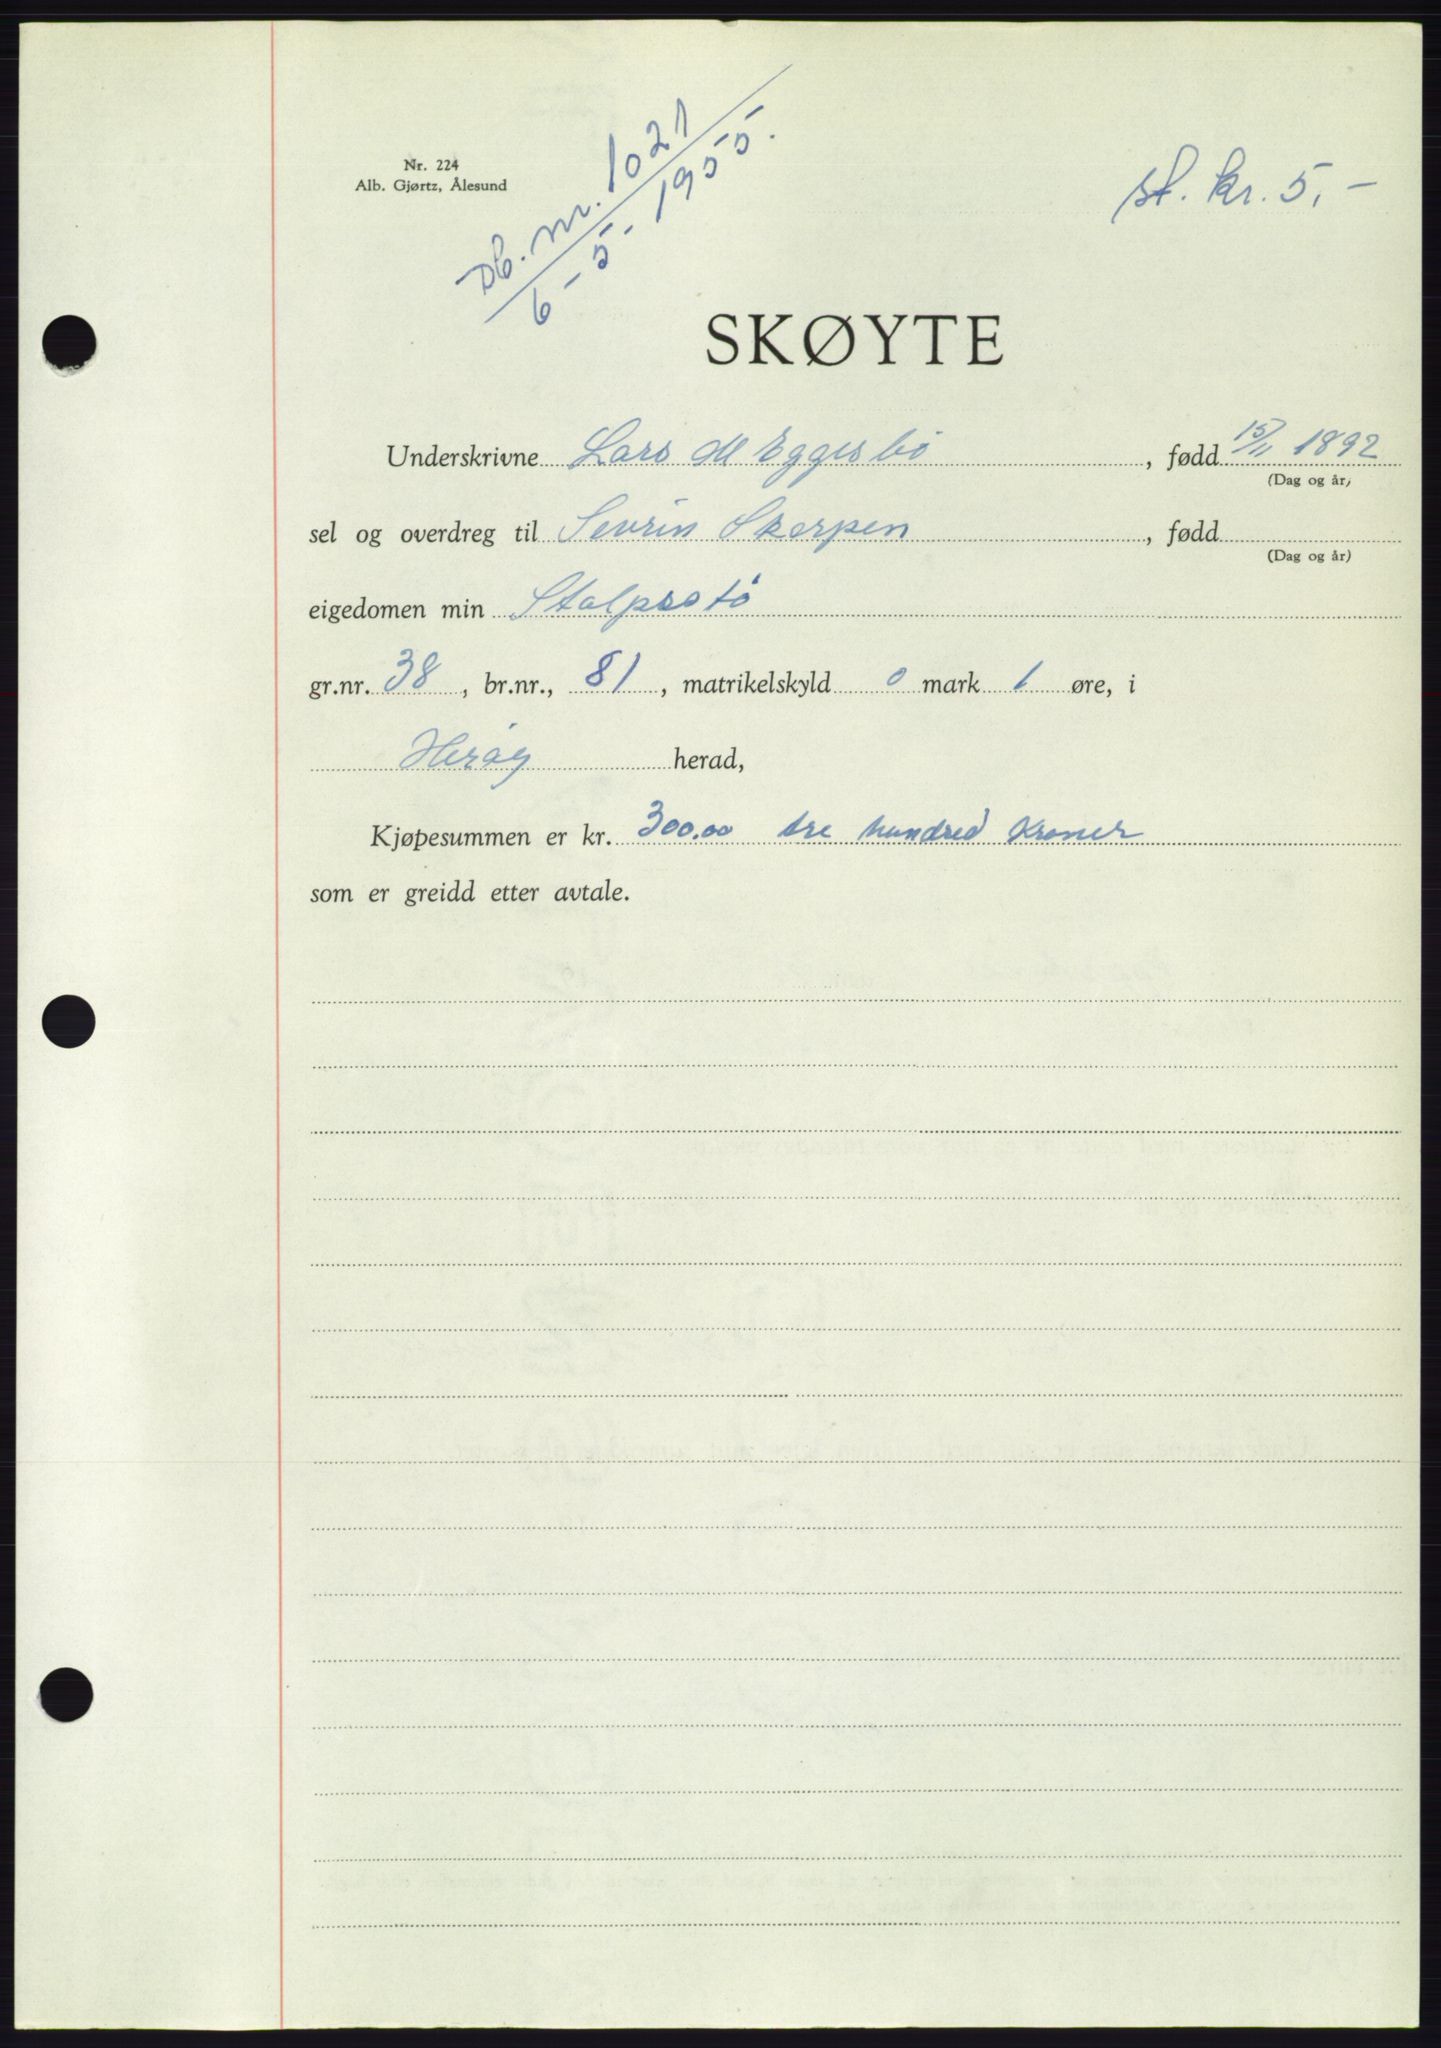 Nr. 224
Alb. Gjørtz, Ålesund
Db. nr. 1021
6-5-1955.
st. kr. 5,-
SKØYTE
Underskrivne Lars M Eggesbö, fødd 15/11 1892
(Dag og år)
sel og overdreg til Sevrin Skorpen, fødd
(Dag og år)
eigedomen min Stolpestö
gr.nr. 38, br.nr., 81, matrikelskyld 0 mark 1 øre, i
Heröy herad,
Kjøpesummen er kr. 300.00 tre hundred Kroner
som er greidd etter avtale.